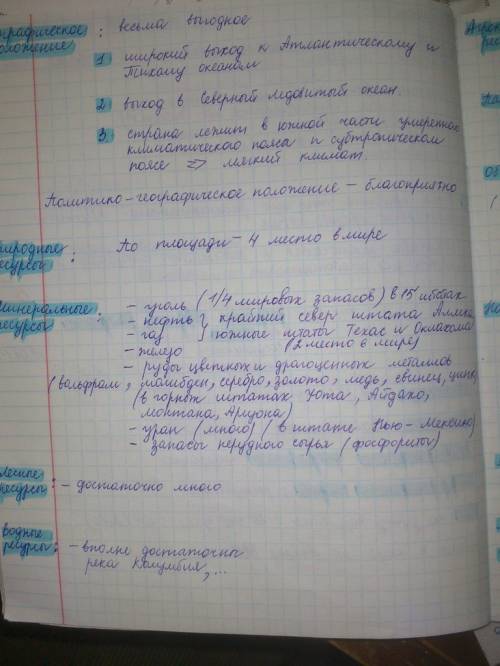 весьма выгодное
положение :
1 широкий выход к Атлантическому и
Тихому океанам
2 выход в Северный ледовитый океан.
3. страна лежит в южной части умеренного
климатического пояса и субтропическом
поясе => мягкий климат.
Политико-географическое положение – благоприятно
По площади – 4 место в мире
ресурсы :
- уголь (1/4 мировых запасов) в 15 штатах
- нефть } крайний север штата Аляска
- газ } южные штаты Техас и Оклахома
- железо (2 место в мире)
- руды цветных и драгоценных металлов
(вольфрам, молибден, серебро, золото, медь, свинец, цинк)
(в горных штатах Юта, Айдахо,
монтана, Аризона)
- уран (много) (в штате Нью-Мексико)
- запасы нерудного сырья (фосфориты)
лесные
ресурсы : - достаточно много
водные
ресурсы : - вполне достаточны
река Колумбия, ...